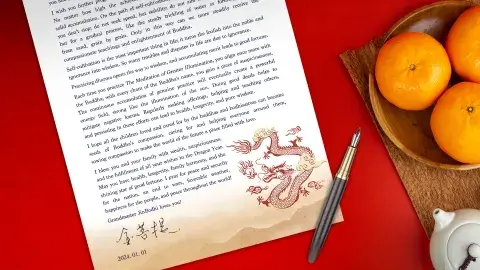 I wish you further
No matter how high the
solid accumulation. On the path of self-cultivation
you don't stop, do not seek speed, but stability, do not
but for a gradual process, like the steady trickling of water
from seed, grain by grain. Only in this way can we more readily receive the
compassionate teachings and enlightenment of Buddha.
Self-cultivation is the most important thing in life; it turns the foolish into the noble and
ignorance into wisdom. So many troubles and disputes in life are due to ignorance.
Practicing dharma opens the way to wisdom, and accumulating merit leads to good fortune.
Each time you practice The Meditation of Greater Illumination, you align once more with
the Buddha; with every chant of the Buddha's name, you gain a piece of auspiciousness.
The continuous accumulation of genuine practice will eventually create a powerful
energy field, strong like the illumination of the sun. Doing good deeds helps to
mitigate negative karma. Regularly making offerings, helping and teaching others,
and persisting in these efforts can lead to health, longevity, and pure wisdom.
I hope all the children loved and cared for by the buddhas and bodhisattvas can become
seeds of Buddha's compassion, caring for and helping everyone around them,
sowing compassion to make the world of the future a place filled with love.
I bless you and your family with wealth, auspiciousness,
and the fulfillment of all your wishes in the Dragon Year.
May you have health, longevity, family harmony, and the
shining star of good fortune. I pray for peace and security
for the nation, an end to wars, favorable weather,
happiness for the people, and peace throughout the world!
Grandmaster JinBodhi loves you!
金菩提
2024. 01. 01